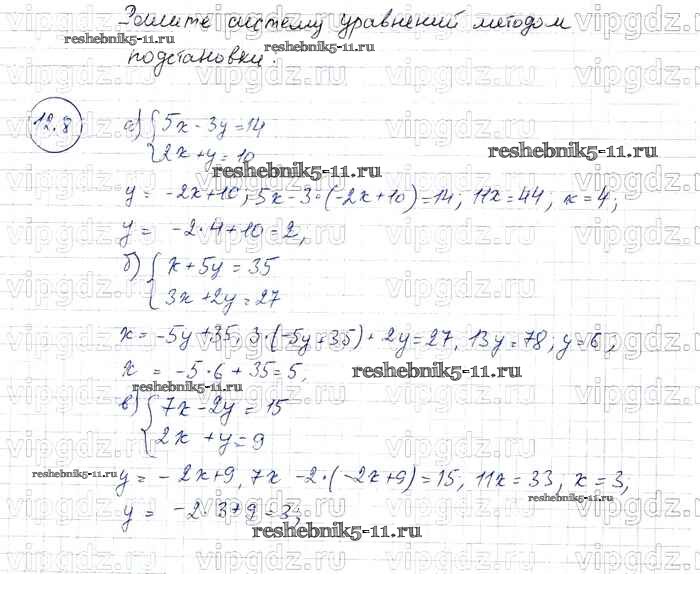 Решите систему уравнений методом
reshebnik5-11.ru
reshebnik5-11.ru
подстановки.
12.8
а) { 5x - 3y = 14
2x + y = 10
reshebnik5-11.ru
reshebnik5-11.ru
y = -2x+10; 5x - 3·(-2x+10) = 14; 11x = 44; x = 4;
y = -2·4+10 = 2,
б) { x + 5y = 35
3x + 2y = 27
x = -5y + 35, 3·(-5y + 35) + 2y = 27, 13y = 78, y = 6,
x = -5·6 + 35 = 5,
reshebnik5-11.ru
reshebnik5-11.ru
в) { 7x - 2y = 15
2x + y = 9
reshebnik5-11.ru
y = -2x+9, 7x - 2·(-2x+9) = 15, 11x = 33, x = 3,
reshebnik5-11.ru
y = -2·3+9 = 3,
reshebnik5-11.ru
vipgdz.ru